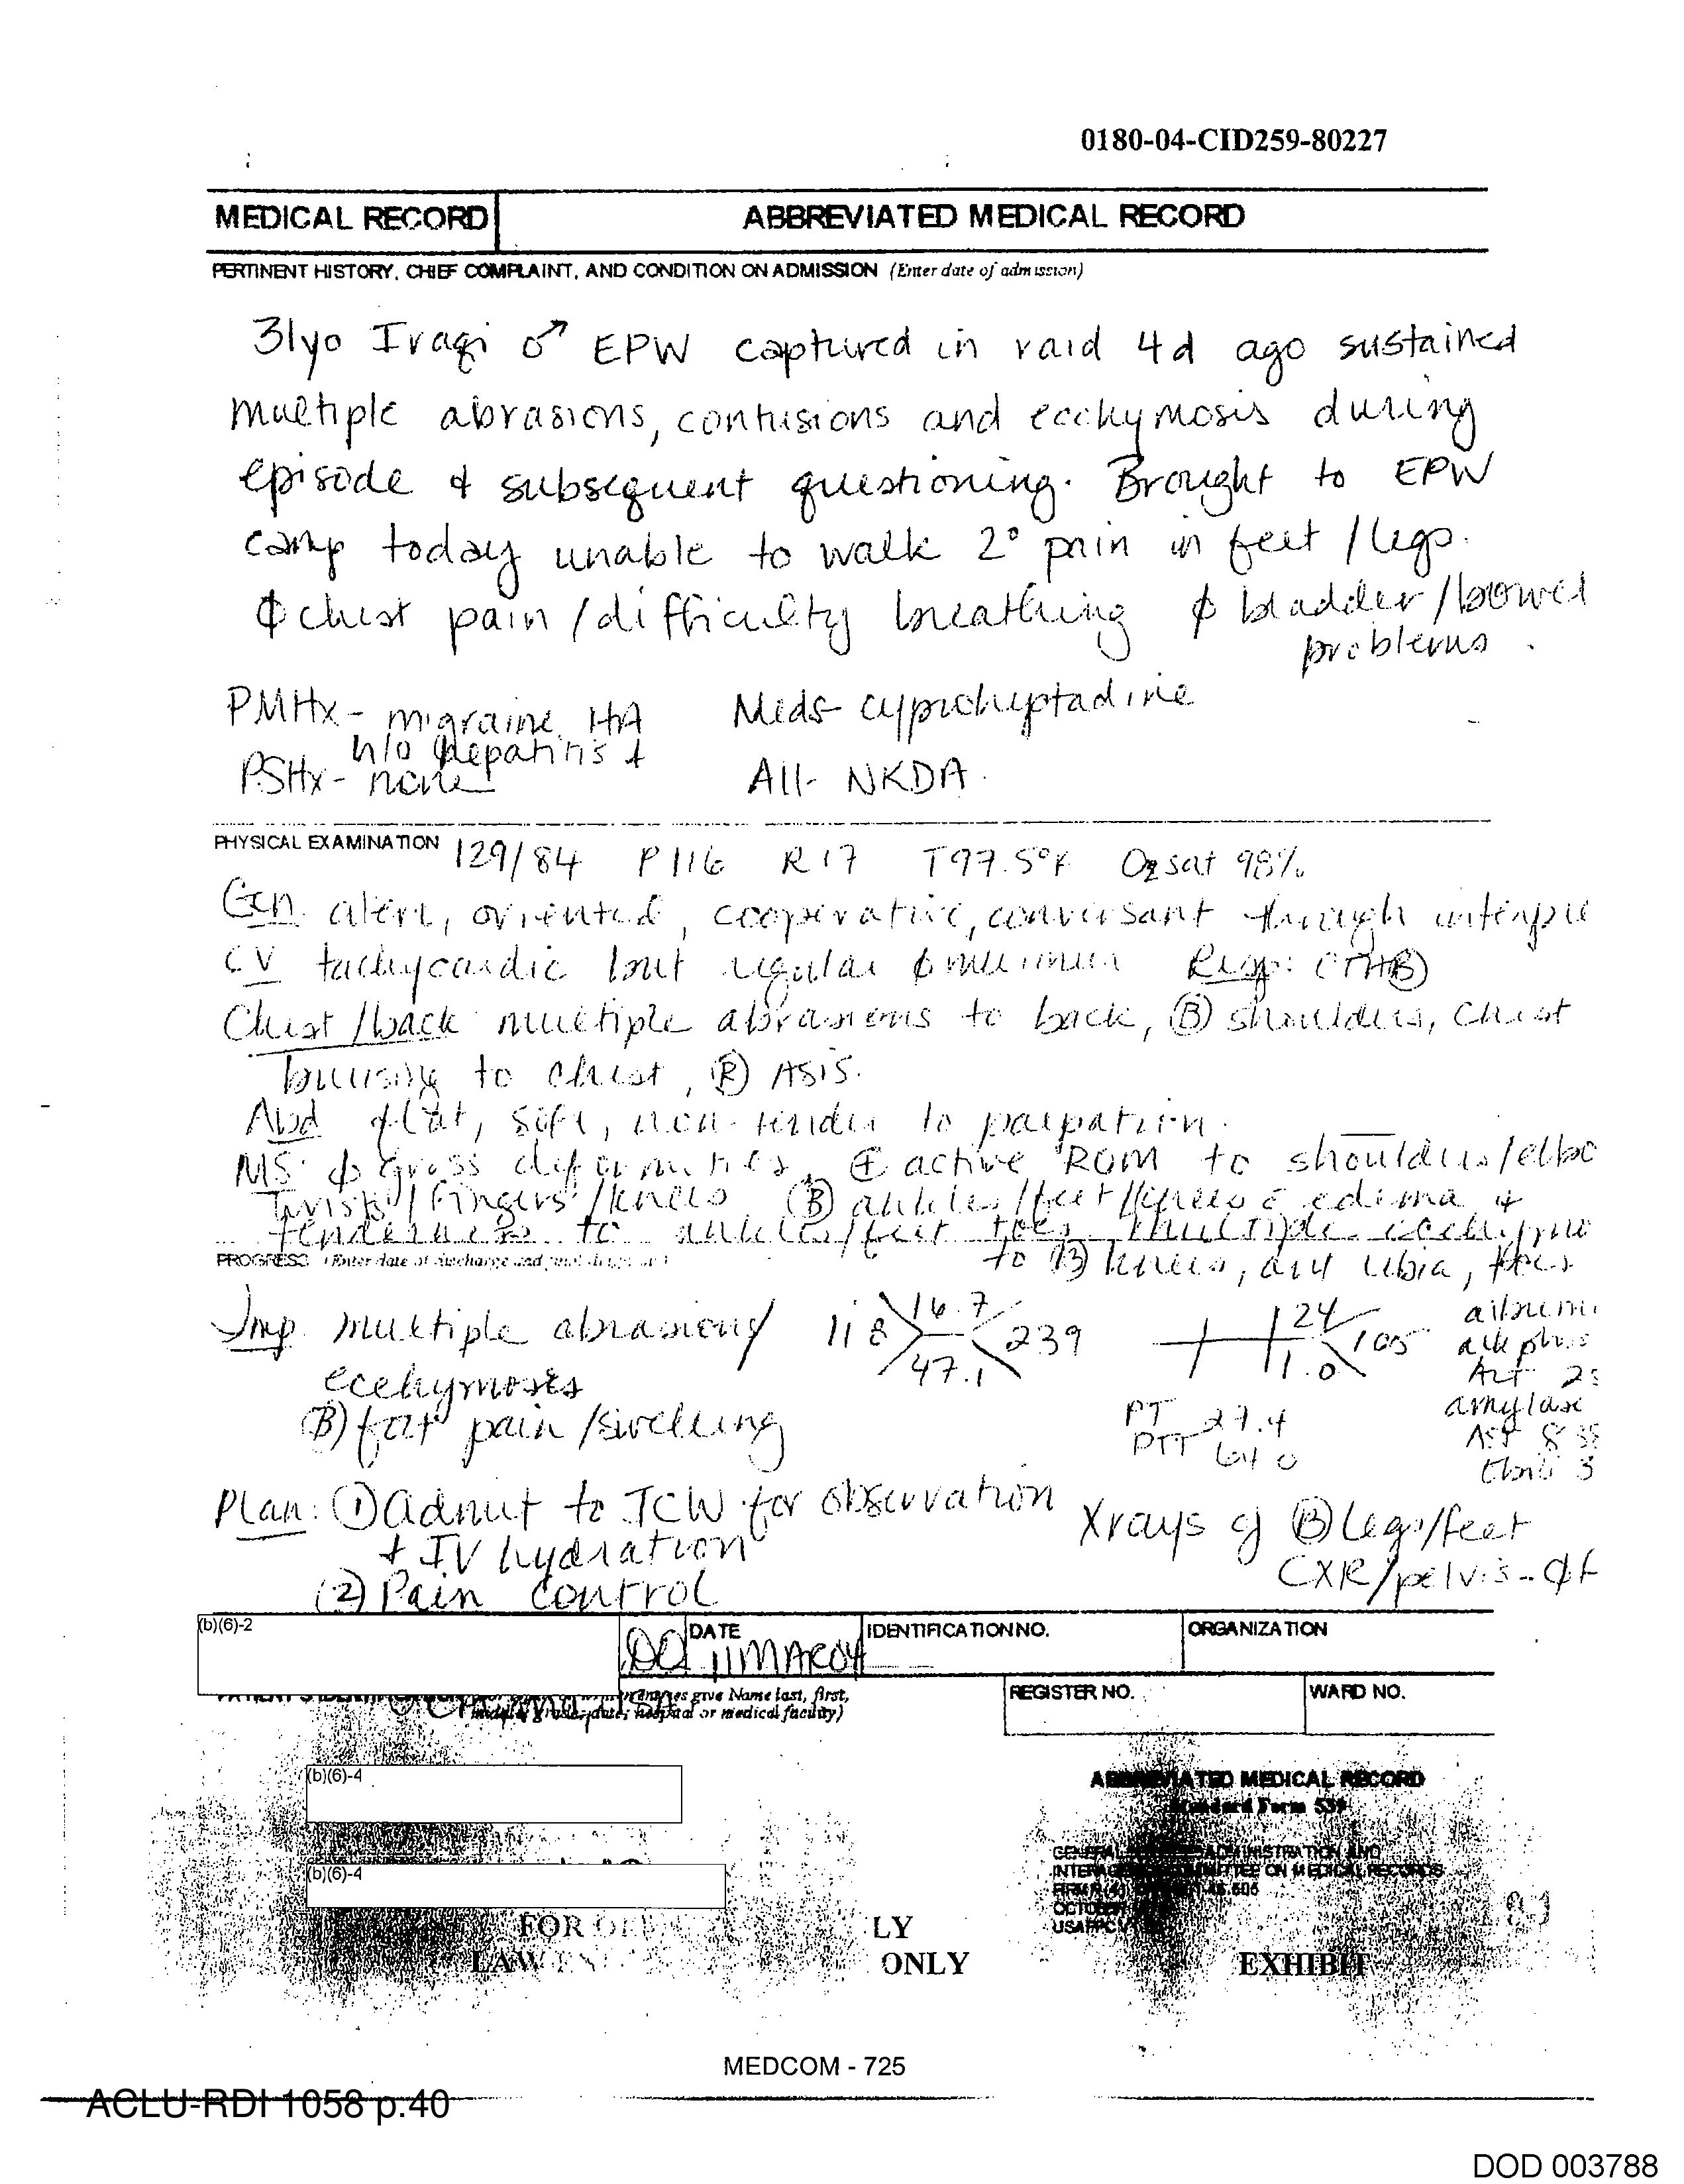 0180-04-CID259-80227
MEDICAL RECORD
ABBREVIATED MEDICAL RECORD
PERTINENT HISTORY, CHIEF COMPLAINT, AND CONDITION ON ADMISSION (Enter date of admission)
31yo Iraqi ♂ EPW captured in raid 4d ago sustained
multiple abrasions, contusions and ecchymosis during
episode & subsequent questioning. Brought to EPW
camp today unable to walk 2° pain in feet/legs.
φ chest pain/difficulty breathing φ bladder/bowel
problems.
PMHx- migraine HA Meds- cyproheptadine
h/o hepatitis
PSHx- none All- NKDA.
PHYSICAL EXAMINATION 129/84 P116 R17 T97.5°F O2 sat 98%
Gen alert, oriented, cooperative, conversant through
CV tachycardic but regular φ murmur Resp: CTA(B)
Chest/back multiple abrasions to back, (B) shoulders, chest
bruising to chest, (R) ASIS.
Abd flat, soft, non-tender to palpation.
MS φ gross deformities, ⊕ active ROM to shoulders/elbo
wrists/fingers/knees (B) ankles/feet/knees c̄ edema &
tenderness to ankles/feet toes multiple
PROGRESS (Enter date of discharge and final diagnosis)
to (B) knees, tibia, toes
Imp. multiple abrasions/ 11.8 16.7 239 24 105
ecchymoses 47.1 1.0
(B) feet pain/swelling
alk phos
ALT
amylase
AST
PT 27.4
PTT 64.0
Plan: ① Admit to ICW for observation
+ IV hydration
(2) Pain control
Xrays of (B) legs/feet
CXR/pelvis -
(b)(6)-2
DO
DATE
11MAR04
IDENTIFICATION NO.
ORGANIZATION
give Name last, first,
hospital or medical facility)
REGISTER NO.
WARD NO.
(b)(6)-4
(b)(6)-4
ABBREVIATED MEDICAL RECORD
Standard Form 539
GENERAL ADMINISTRATION AND
COMMITTEE ON MEDICAL RECORDS
FOR LY
LAW ONLY
EXHIBIT
MEDCOM - 725
ACLU-RDI 1058 p.40
DOD 003788